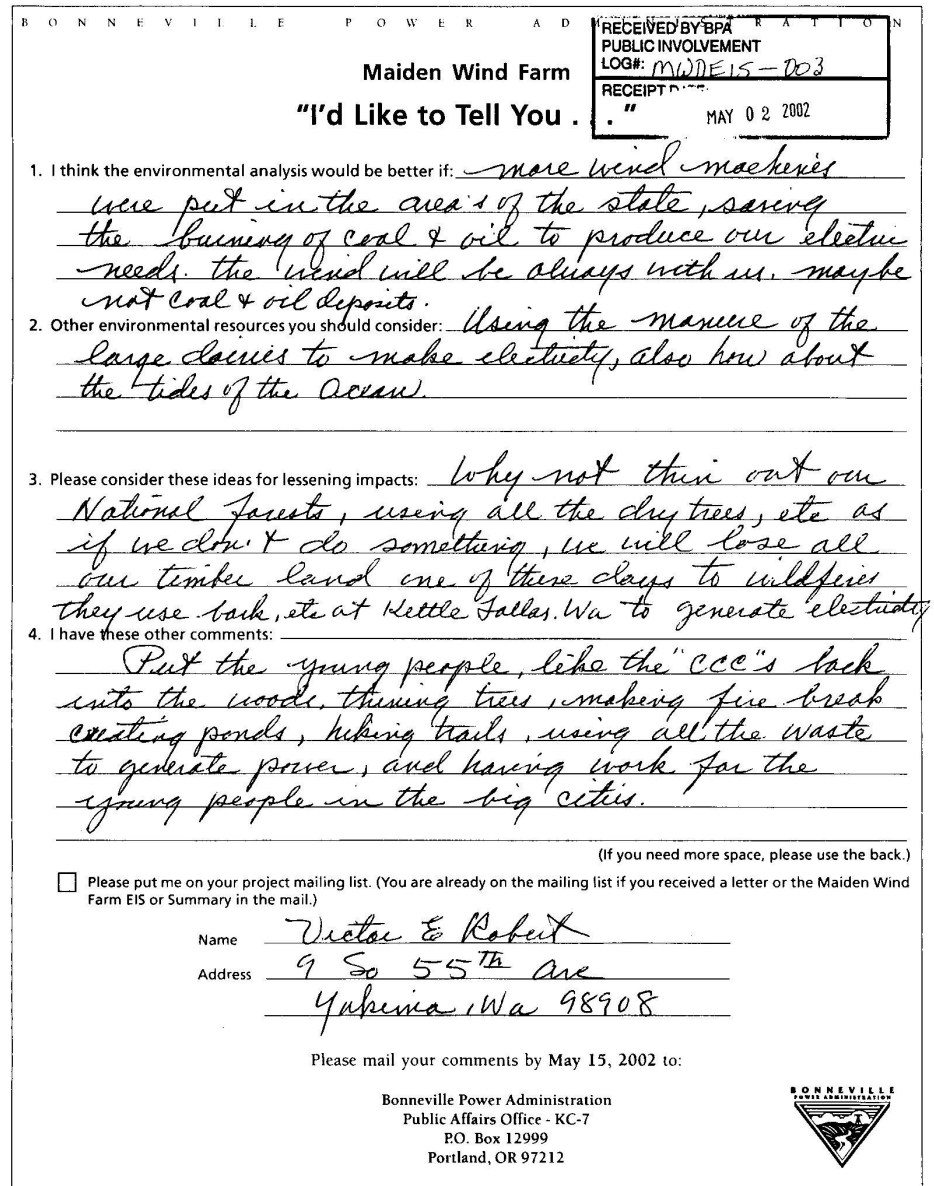 BONNEVILLE POWER ADMINISTRATION
RECEIVED BY BPA
PUBLIC INVOLVEMENT
LOG#: MWDEIS-003
RECEIPT DATE:
MAY 02 2002
Maiden Wind Farm
"I'd Like to Tell You . . ."
1. I think the environmental analysis would be better if: more wind machenes
were put in the area's of the state, saving
the burning of coal & oil to produce our electric
needs. the wind will be always with us. maybe
not coal & oil deposits.
2. Other environmental resources you should consider: Using the manure of the
large dairies to make electricty, also how about
the tides of the Ocean.
3. Please consider these ideas for lessening impacts: Why not thin out our
National forests, using all the dry trees, etc as
if we don't do something, we will lose all
our timber land one of these days to wildfires
they use bark, etc at Kettle Fallas. Wa to generate electricity
4. I have these other comments:
Put the young people, like the "CCC"s back
into the woods, thining trees, making fire break
creating ponds, hiking trails, using all the waste
to generate power, and having work for the
young people in the big cities.
(If you need more space, please use the back.)
Please put me on your project mailing list. (You are already on the mailing list if you received a letter or the Maiden Wind
Farm EIS or Summary in the mail.)
Name Victor E Robert
Address 9 So 55th Ave
Yakima, Wa 98908
Please mail your comments by May 15, 2002 to:
Bonneville Power Administration
Public Affairs Office - KC-7
P.O. Box 12999
Portland, OR 97212
BONNEVILLE
POWER ADMINISTRATION